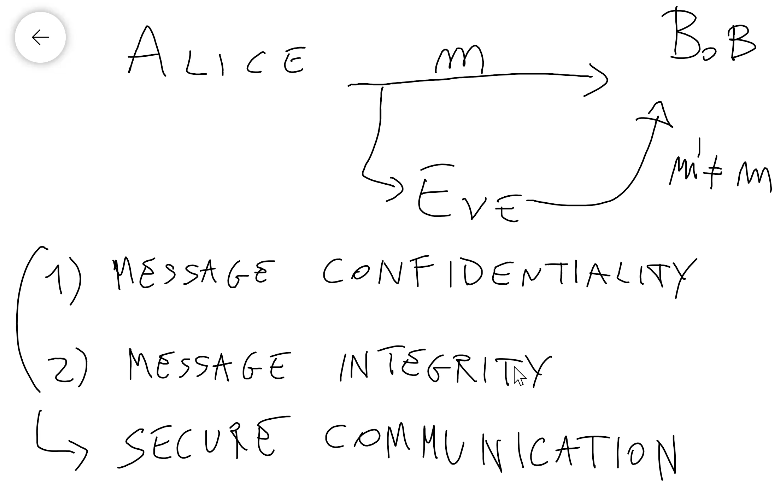 ALICE
m
BOB
EVE
m' ≠ m
1) MESSAGE CONFIDENTIALITY
2) MESSAGE INTEGRITY
SECURE COMMUNICATION